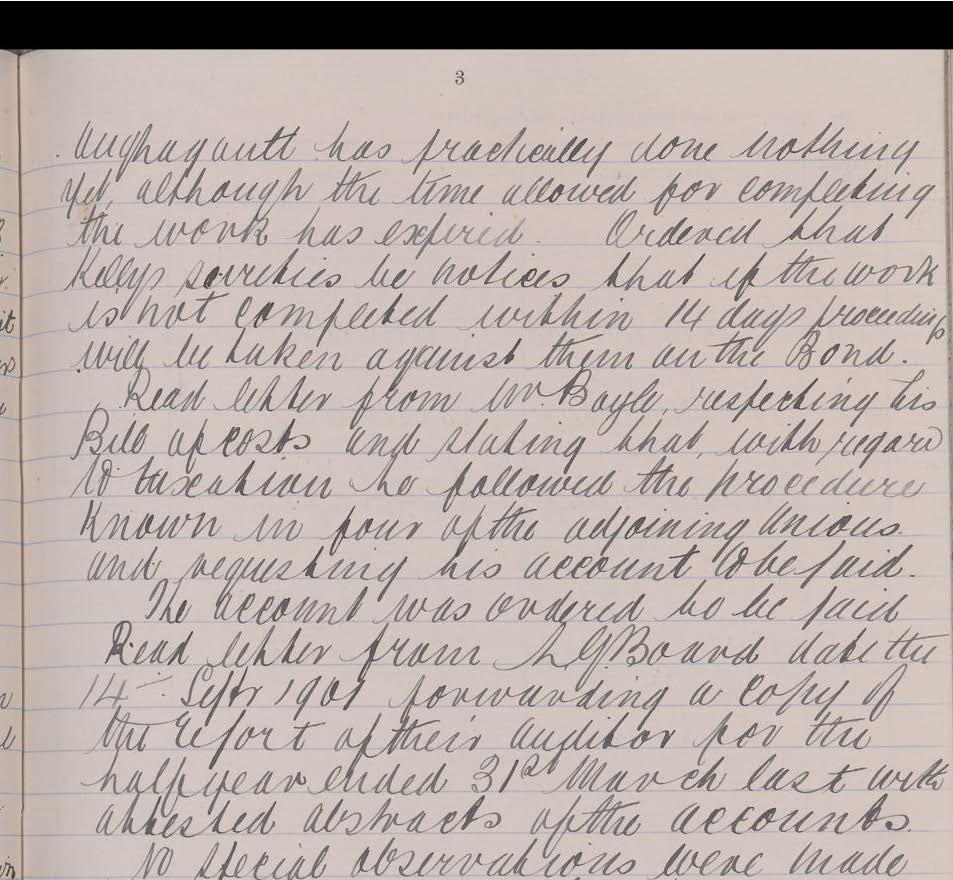 3
Aughagault has practically done nothing
yet, although the time allowed for completing
the work has expired. Ordered that
Kellys sureties be notices that if the work
is not completed within 14 days proceedings
will be taken against them on the Bond.
Read letter from Mr. Boyle, respecting his
Bill of costs and stating that, with regard
to taxation he followed the procedure
known in four of the adjoining Unions.
and requesting his account to be paid.
The account was ordered to be paid
Read letter from L G Board date the
14th Septr 1901 forwarding a copy of
the report of their auditor for the
half year ended 31st March last with
attested abstracts of the accounts.
No special observations were made